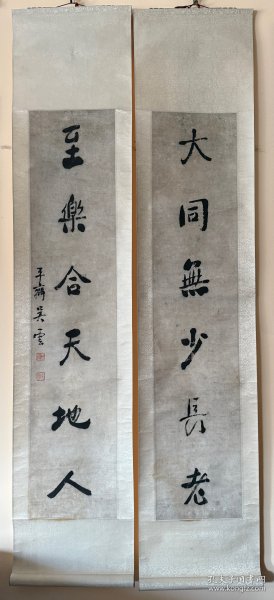 大同無少長老
至樂合天地人
平齋吳雲
孔夫子旧书网